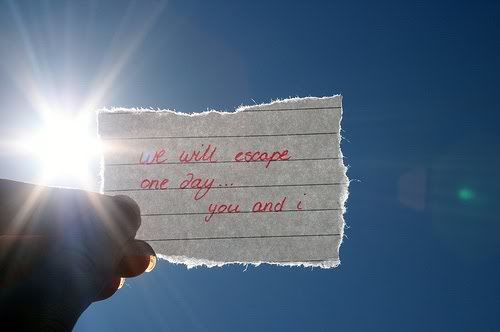 we will escape
one day...
you and i